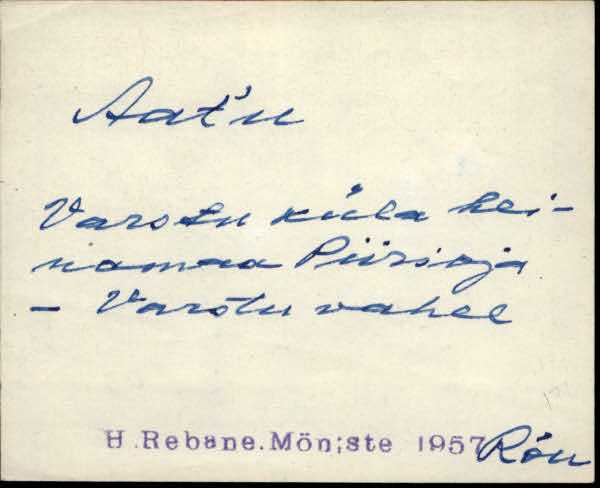 Aat'u
Varstu küla hei-
namaa Piirioja
– Varstu vahel
H.Rebane.Mõniste 1957 Rõu